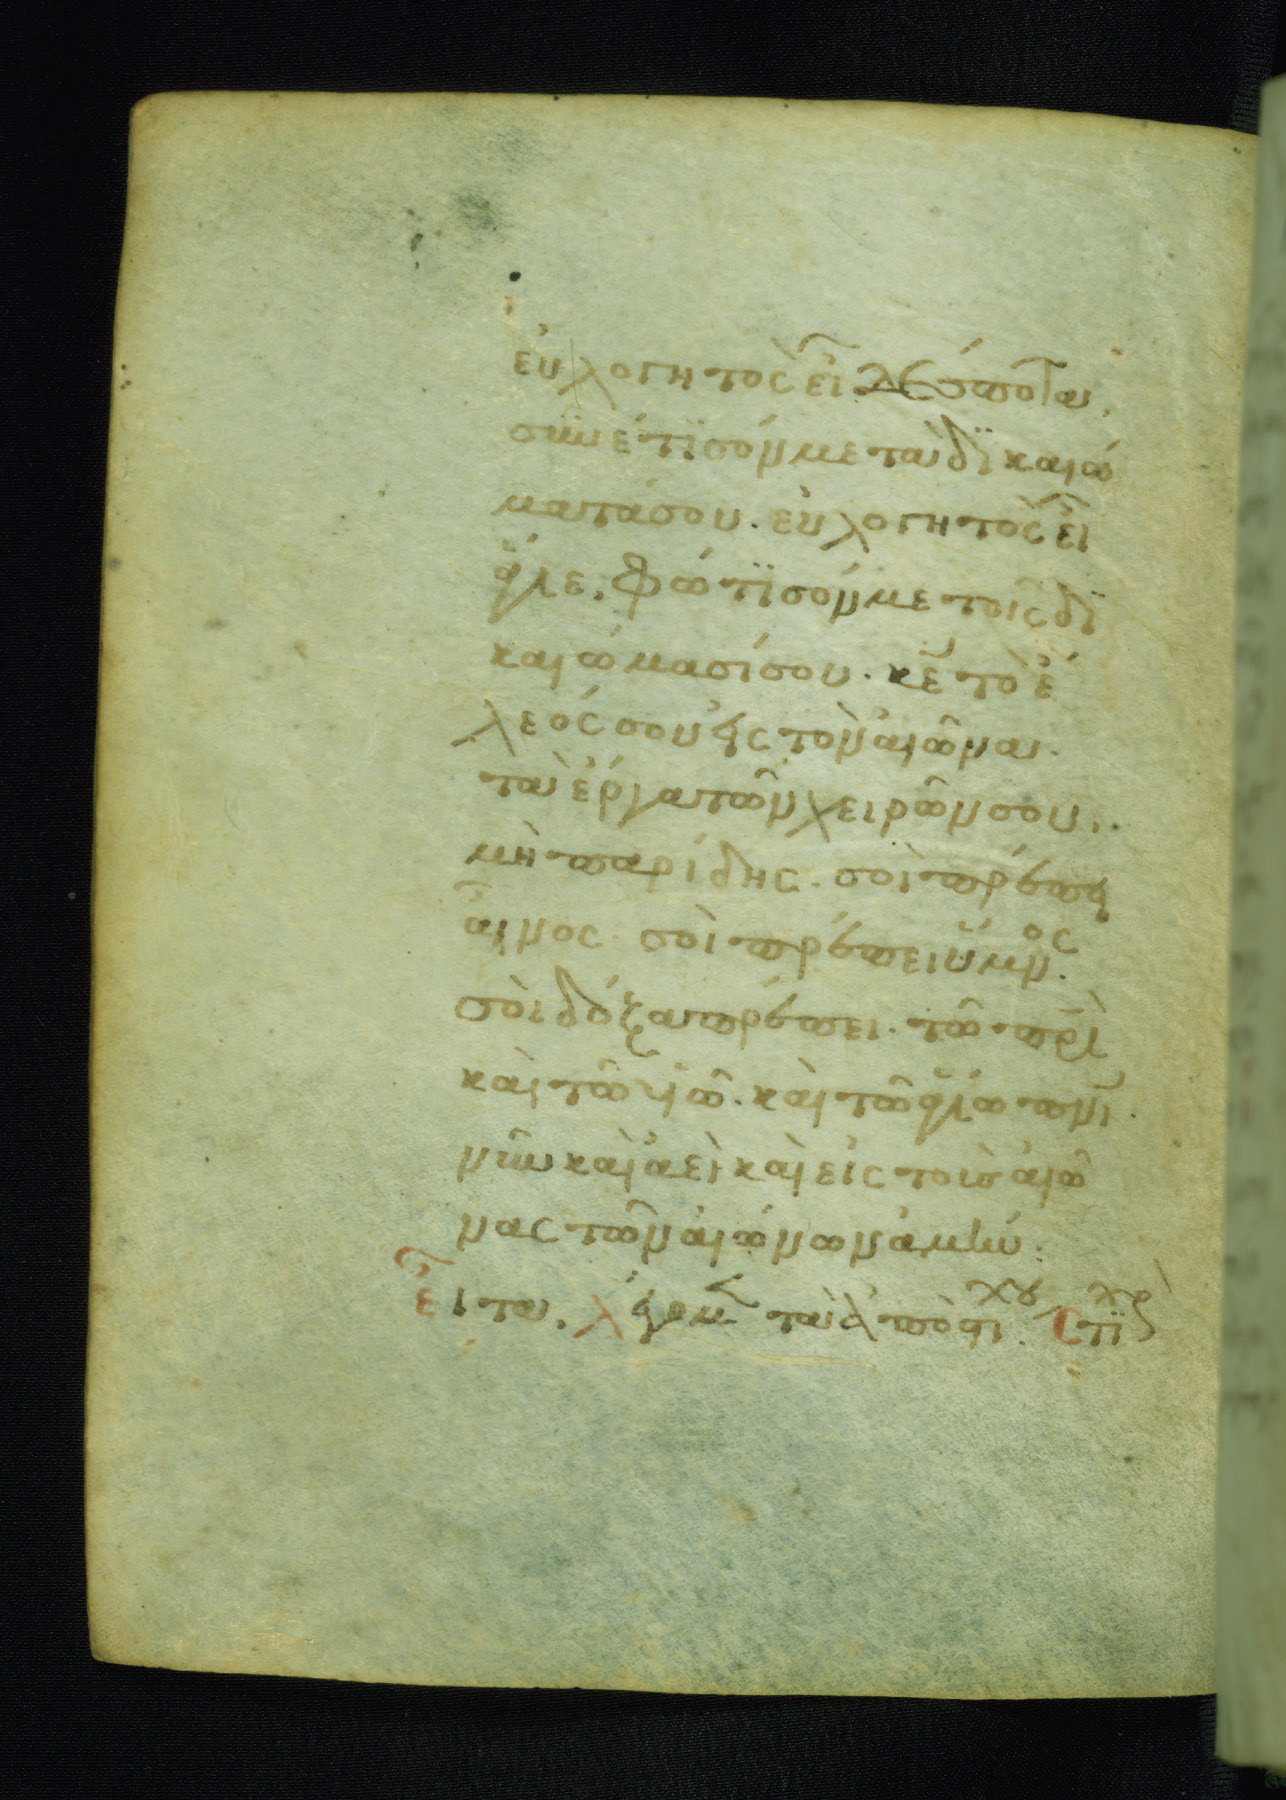 εὐλογητὸς εἶ δέσποτα,
συνέτϊσόν με τα δϊκαιώ
ματά σου. εὐλογητὸς εἶ
ἅγιε. φώτϊσόν με τοῖς δϊ
καιώμασί σου. κε̄ τὸ ἔ
λεός σου εἰς τὸν αἰῶνα.
τα ἔργα τῶν χειρῶν σου.
μὴ παρίδης. σοὶ πρέπει
αἶνος. σοὶ πρέπει ὕμνος.
σοὶ δόξα πρέπει. τῶ πρὶ
καὶ τῶ υἱῶ. καὶ τῶ ἁγίω πνι.
νῦν καὶ ἀεὶ καὶ εἰς τοὺς αἰῶ
νας τῶν αἰώνων ἀμήν:
εἶτα.